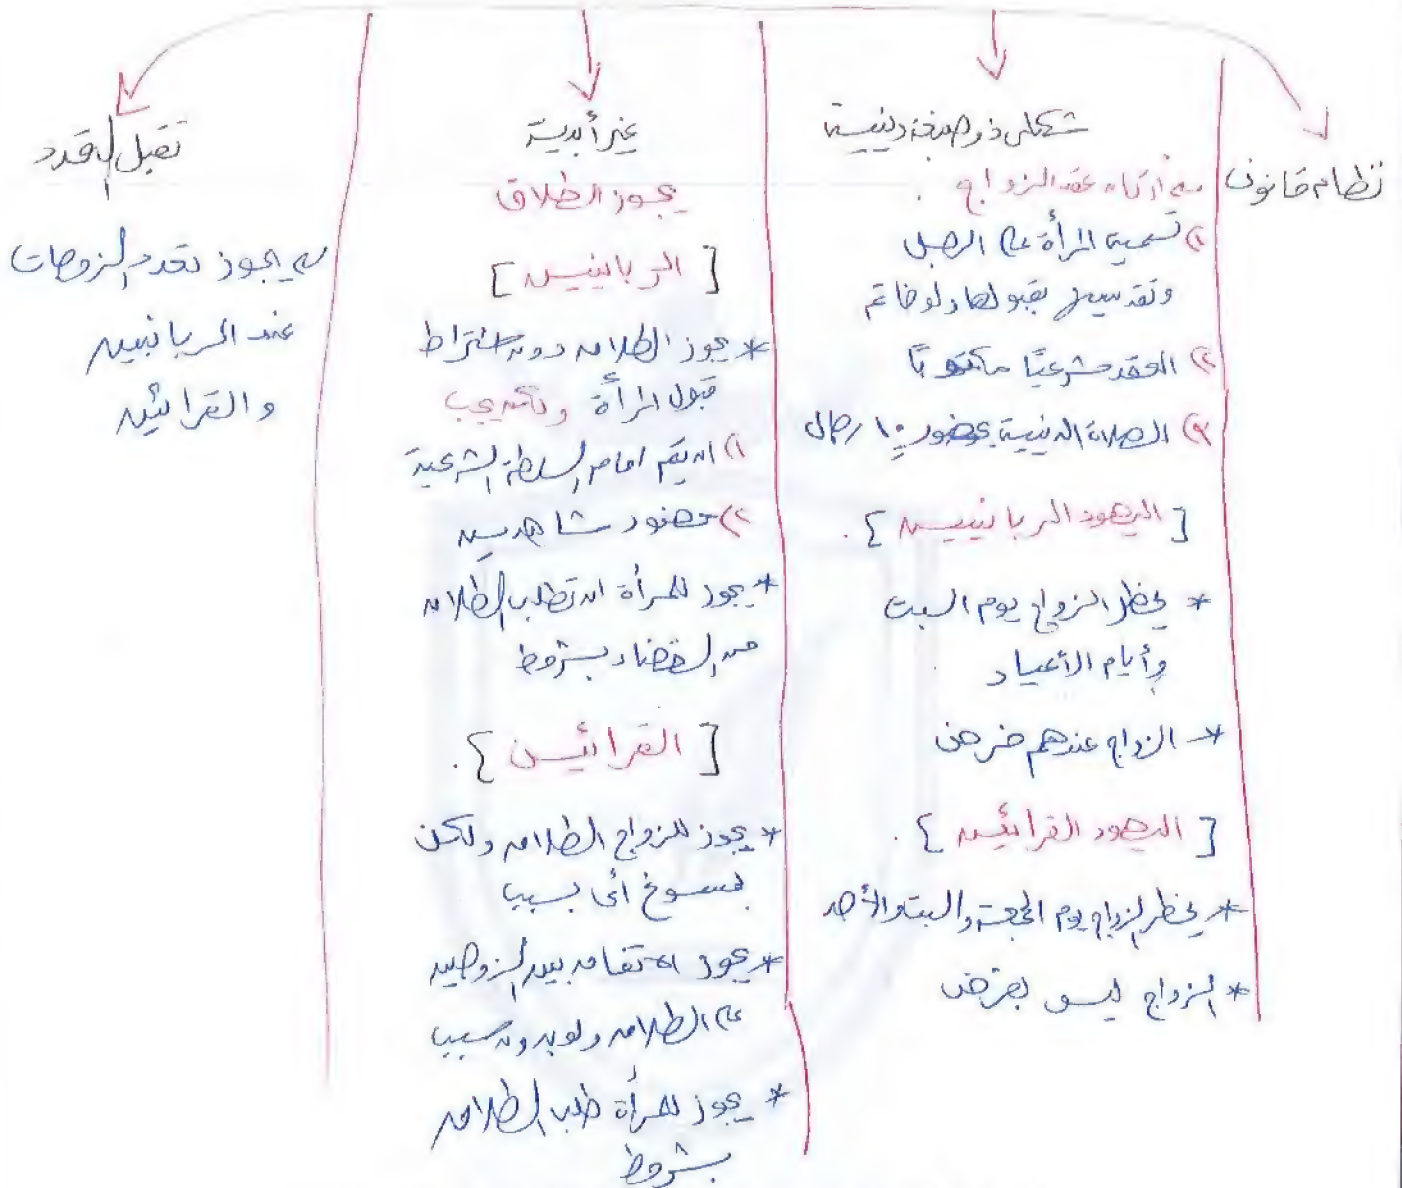 نظام قانوني
شكلي ذو صبغة دينية
من أركان عقد الزواج .
١) تسمية المرأة على الرجل
وتقديسها بقبولها ولو خاتم
٢) العقد شرعيًا مكتوبًا
٣) الصلاة الدينية بحضور ١٠ رجال
[ اليهود الربانيين ] .
* يحظر الزواج يوم السبت
وأيام الأعياد
* الزواج عندهم فرض
[ اليهود القرائين ] .
* يحظر الزواج يوم الجمعة والسبت والأحد
* الزواج ليس بفرض
غير أبدية
يجوز الطلاق
[ الربانيين ]
* يجوز الطلاق دون اشتراط
قبول المرأة ولكنه يجب
١) ان يتم امام السلطة الشرعية
٢) حضور شاهدين
* يجوز للمرأة ان تطلب الطلاق
من القضاء بشروط
[ القرائين ] .
* يجوز للزواج الطلاق ولكن
بمسوغ أي بسبب
* يجوز الاتفاق بين الزوجين
على الطلاق ولو بدون سبب
* يجوز للمرأة طلب الطلاق
بشروط
تقبل التعدد
يجوز تعدد الزوجات
عند الربانيين
والقرائين